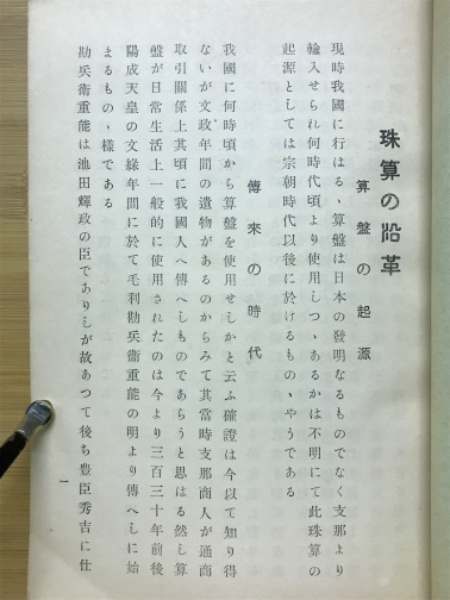 珠算の沿革
算盤の起源
現時我國に行はるゝ算盤は日本の發明なるものでなく支那より
輸入せられ何時代頃より使用しつゝあるかは不明にて此珠算の
起源としては宗朝時代以後に於けるものゝやうである
傳來の時代
我國に何時頃から算盤を使用せしかと云ふ確證は今以て知り得
ないが文政年間の遺物があるのからみて其當時支那商人が通商
取引關係上其頃に我國人へ傳へしものであらうと思はる然し算
盤が日常生活上一般的に使用されたのは今より三百三十年前後
陽成天皇の文綠年間に於て毛利勘兵衞重能の明より傳へしに始
まるものゝ樣である
勘兵衞重能は池田輝政の臣でありしが故あつて後ち豊臣秀吉に仕
一